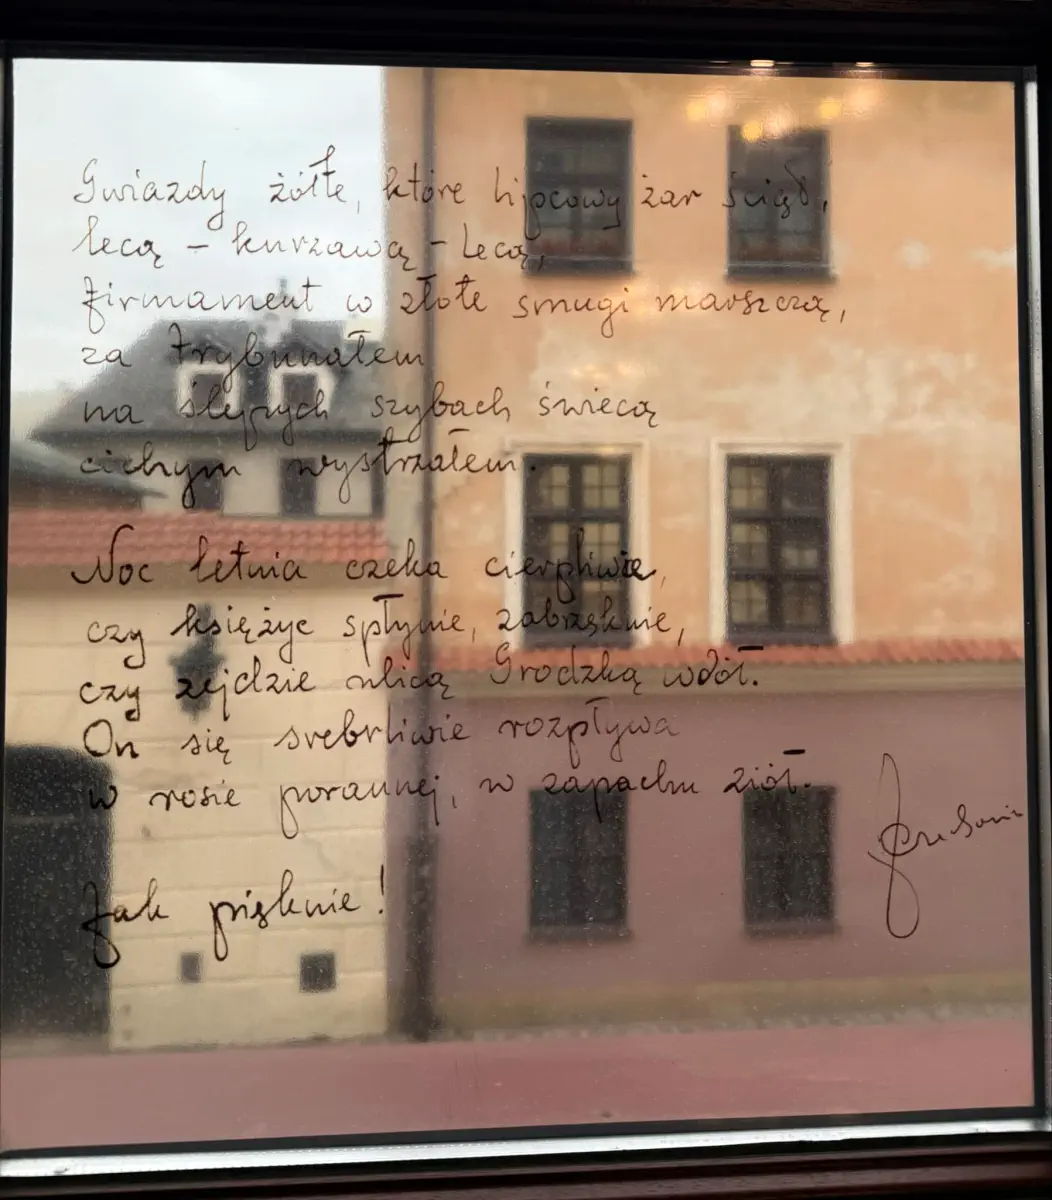 Gwiazdy żółte, które lipcowy żar ściął,
lecą – kurzawą – lecą,
firmament w złote smugi marszczą,
za trybunałem
na ślepych szybach świecą
cichym wystrzałem.
Noc letnia czeka cierpliwie,
czy księżyc spłynie, zabrzęknie,
czy zejdzie ulicą Grodzką wdół.
On się srebrliwie rozpływa
w rosie porannej, w zapachu ziół.
Jak pięknie!